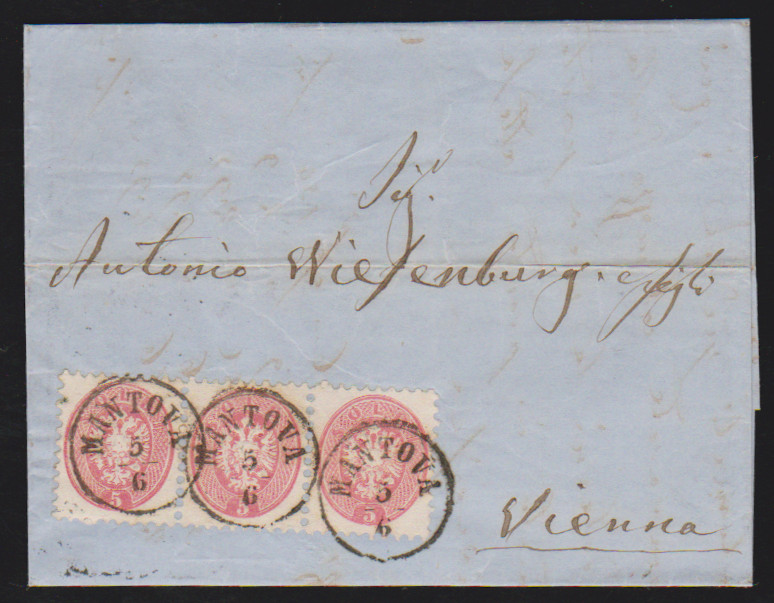 Sig.
Antonio Wiesenburg e figli
Vienna
MANTOVA
5
6
MANTOVA
5
6
MANTOVA
5
6
5
5
SOL
5